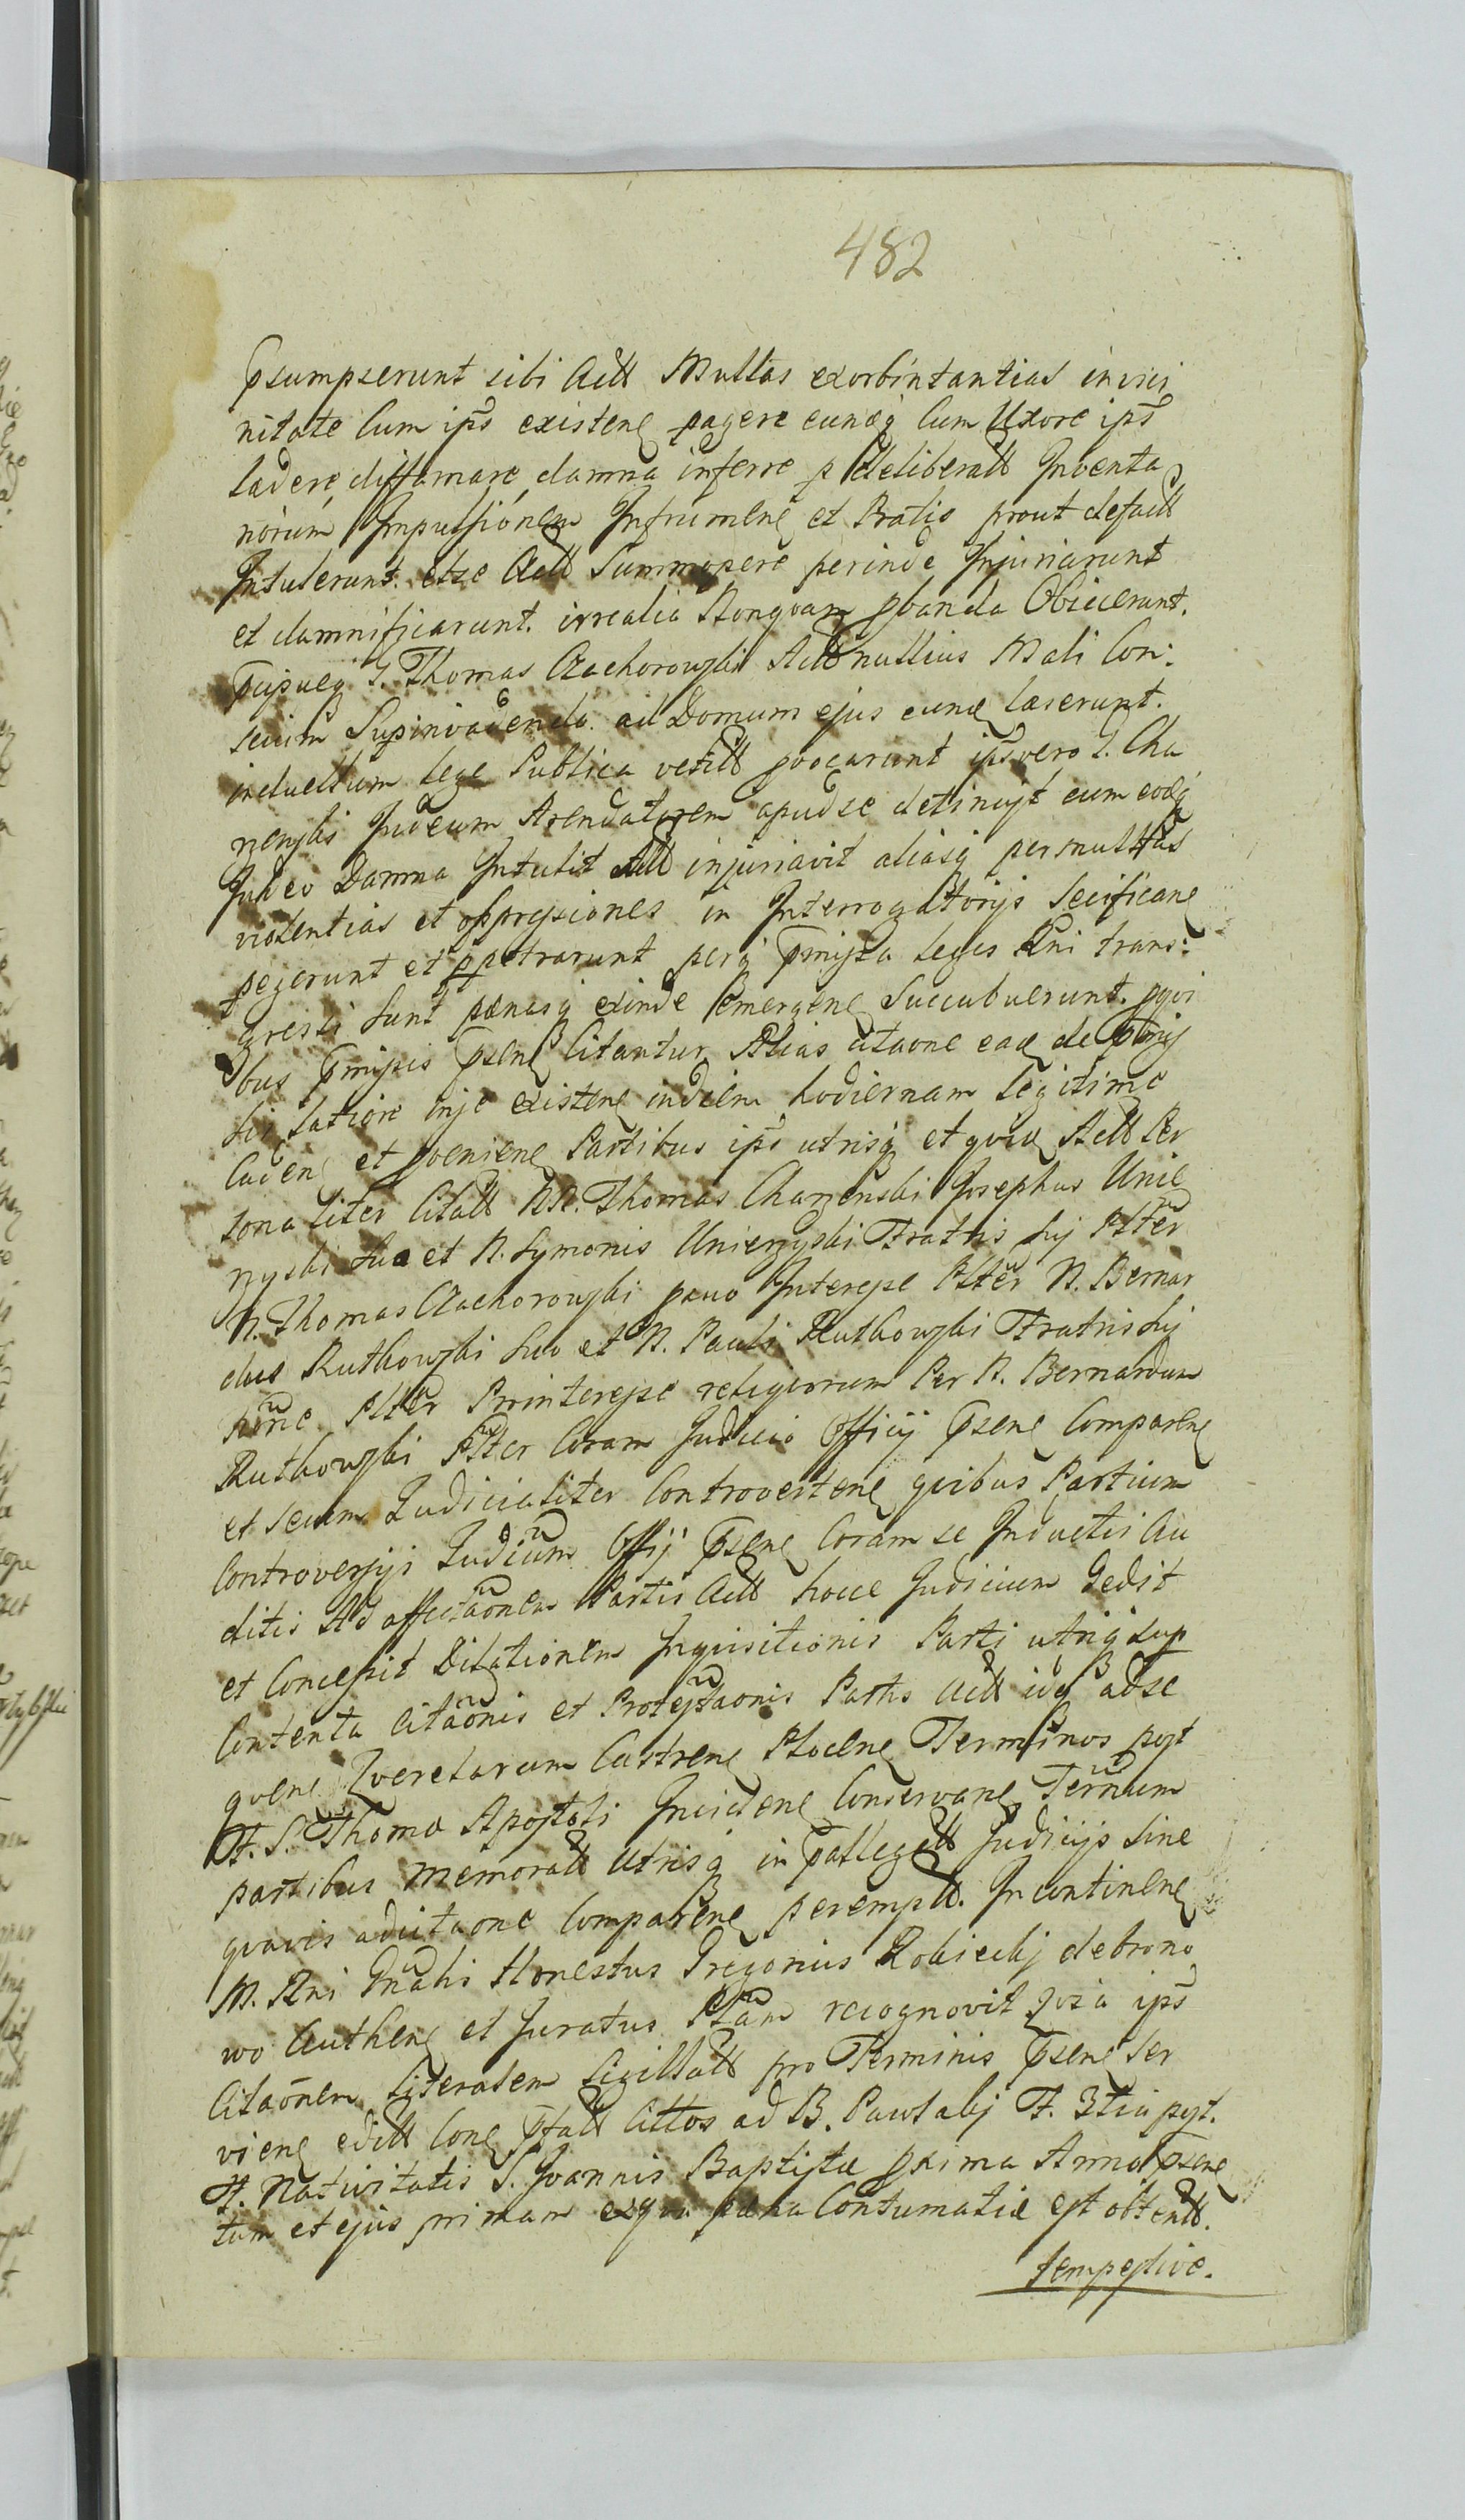 482
psumpserunt sibi Actt Multas exorbintantias in vici
nitate Cum ips existenc pagere eundq Cum Uxore ips
ladere, diffamare, damna inferre p deliberatt Inventa
riorum Impulsionem Infrumenc et Pratis prout defactt
Intulerunt. et se Actt Summopere perinde Injuriarunt
et damnificarunt. irrealia Nonqvam pbanda Obiecerunt.
G. Thomas Czachorowski Actt nullius Mali Con:
scium Supinvadendo ad Domum ejus eund laeserunt.
in duellum lege Publica vetitt pvocarunt ips vero G. Cha
rzenski Judeum Arendatorem apud se detinuit cum eodq
Judeo Damna Intulit Actt injuriavit aliasq permultas
violentias et oppressiones in Interrogatorijs Secificanc
pegerunt et ppetrarunt perq pmissa leges Rni trans:
gressi sunt paenasq exinde Emergenc Succubuerunt. pqvi
bus pmissis psenc Citantur Alias citaone ead de pmis
sis latiore inse existenc in diem hodiernam legitime
Cadenc et pvenienc Partibus ips utrisq et qvid Actt Per
sonaliter Citatt NN. Thomas Charzenski Josephus Unie
rzyski Suo et N. Symonis Unierzyski Fratris sui Alter
N. Thomas Czachorowski pruo Interesse Alter N. Bernar
dus Rutkowski Suo et N. Pauli Rutkowski Fratris sui
noie Alter Prointeresse reliqvorum Per N. Bernardum
Rutkowski Alter Coram Judicio Officij psenc Comparenc
et secum Judicialiter Controvertenc qvibus Partium
Controversijs Judicium Offij psenc Coram se Inductis Au
ditis Ad affectaonem Partis Actt hocce Judicium Dedit
et Concessit Dilationem Inqvisitionis Parti utriq Sup
Contenta Citaonis et Protestaonis Partis Actt idq ad se
qvenc Qverelarum Castrenc Plocenc Terminos post
F. S. Thomae Apostoli Incidenc Conservanc Ternum
partibus memoratt Utrisq in pallegatt Judicijs Sine
qvavis adcitaone Comparenc perempt. In continenc
M. Rni Gnalis Honestus Gregorius Robiecki de brono
wo Authenc et Juratus Plam recognovit Qvia ips
Citaonem literalem Sigillatt pro Terminis psenc Ser
vienc editt Conc pfatt Cittos ad B. Pawlaki F. 3tia post.
F. Nativitatis S. Joannis Baptistae pxima Anno psenc
tum et ejus primam ex qva paena Contumatiae est obtentt.
tempestive.